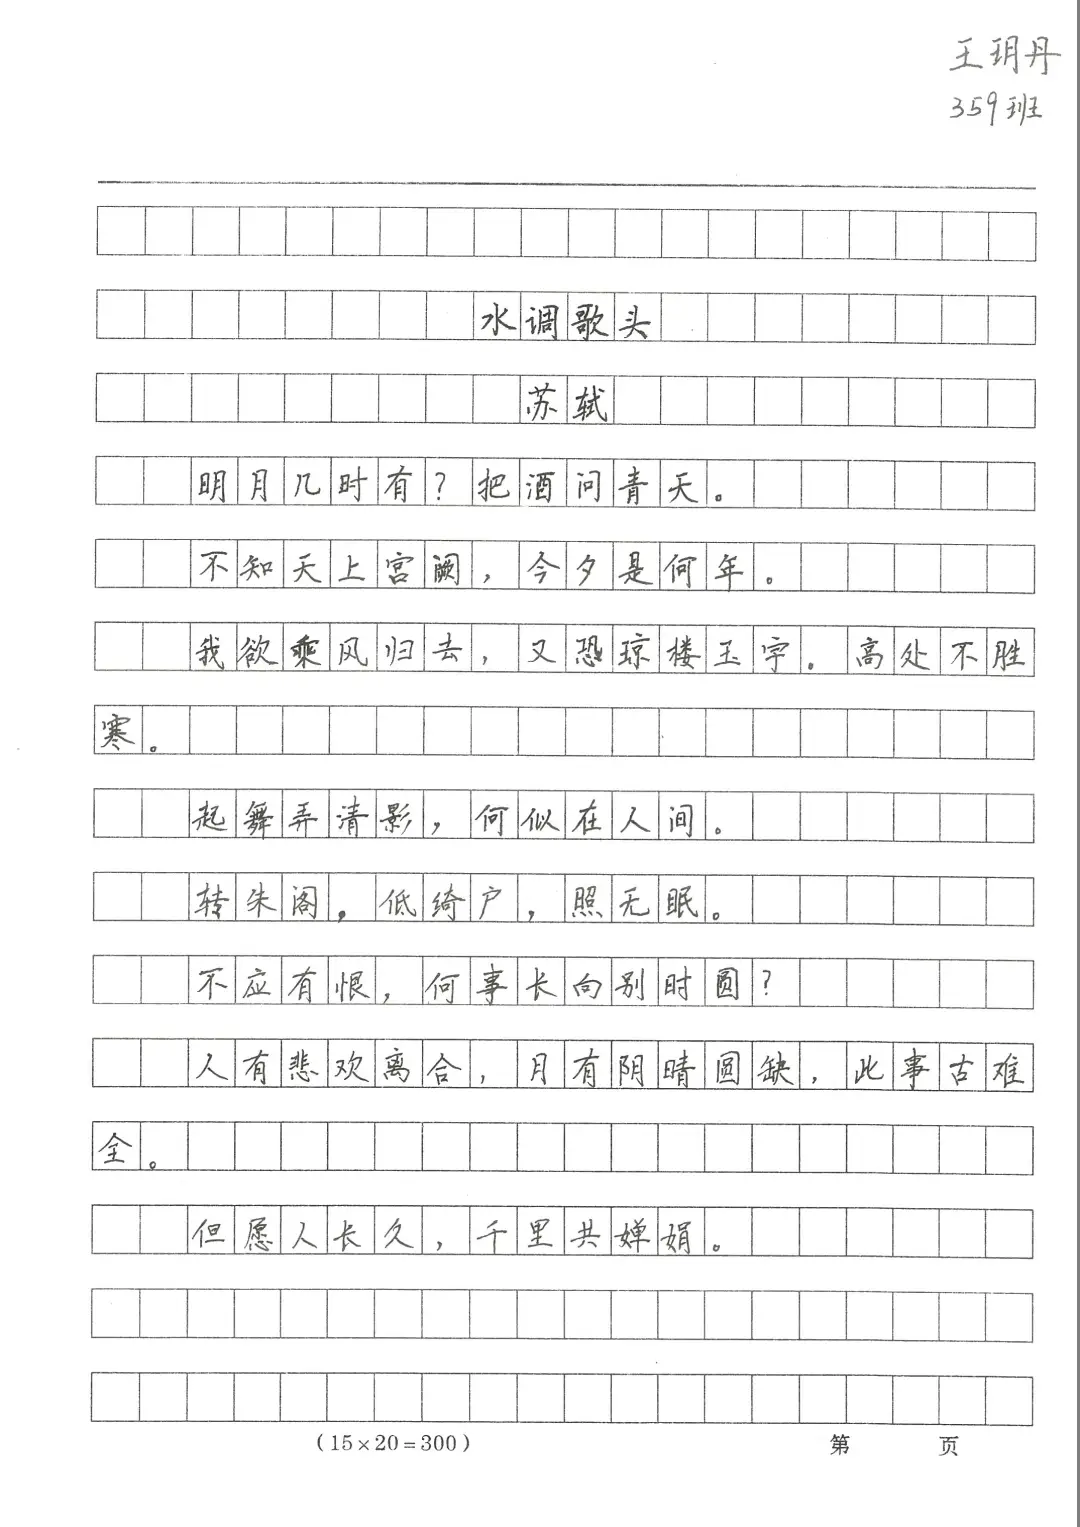 王玥丹
359班
水调歌头
苏轼
明月几时有？把酒问青天。
不知天上宫阙，今夕是何年。
我欲乘风归去，又恐琼楼玉宇。高处不胜
寒。
起舞弄清影，何似在人间。
转朱阁，低绮户，照无眠。
不应有恨，何事长向别时圆？
人有悲欢离合，月有阴晴圆缺，此事古难
全。
但愿人长久，千里共婵娟。
(15×20=300) 第 页